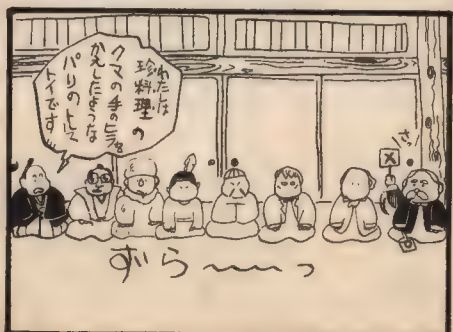 わたしは
珍料理の
クマの手のヒラを
かえしたような
パリの
トイです
さっ
ずら〜〜〜っ